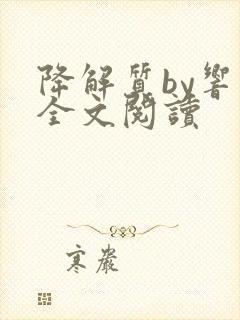 降解質by響
全文閱讀
寒嚴